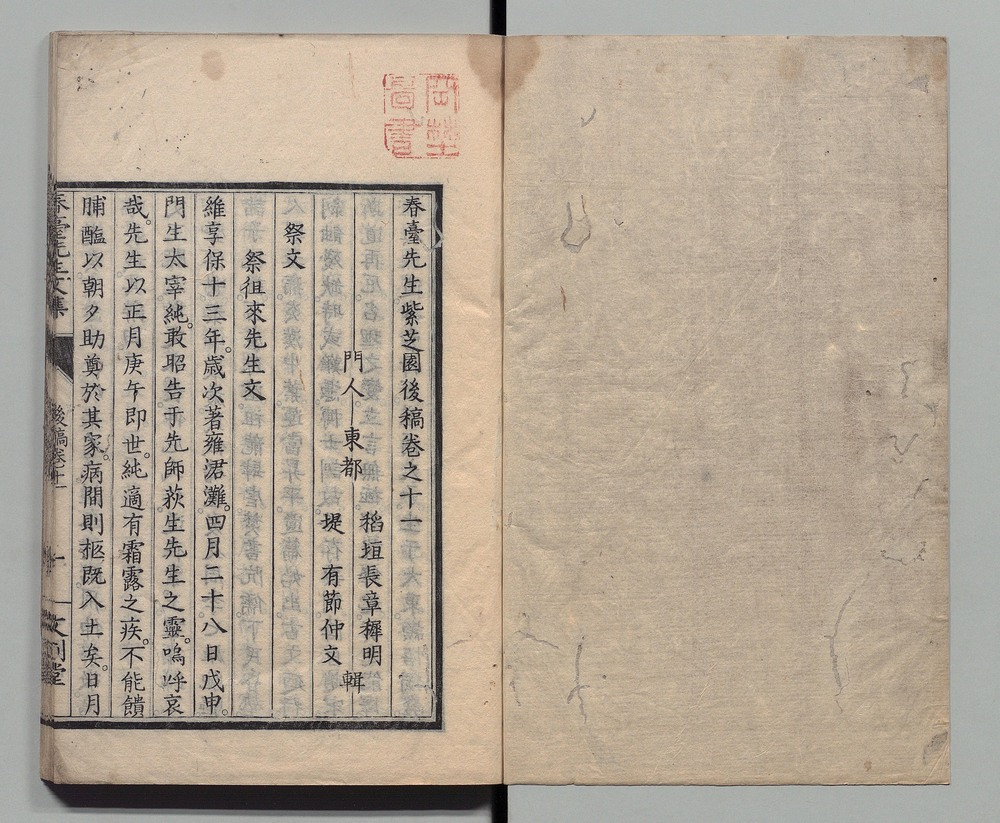 春臺先生紫芝園後稿卷之十一
門人 東都 稻垣長章穉明
堤有節仲文 輯
祭文
祭徂來先生文
維享保十三年。歲次著雍涒灘。四月二十八日戊申。
門生太宰純。敢昭告于先師荻生先生之靈。嗚呼哀
哉。先生以正月庚午即世。純適有霜露之疾。不能饋
脯醢以朝夕助奠於其家。病間則柩既入土矣。日月
春臺先生文集
後稿卷十一
一